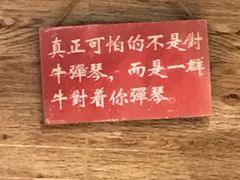 真正可怕的不是對
牛彈琴，而是一群
牛對着你彈琴。